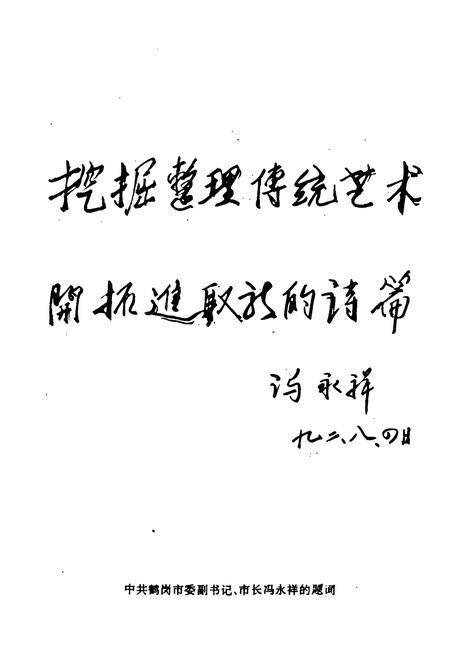 挖掘整理傳统艺术
開拓進取新的詩篇
冯永祥
九二、八、四日
中共鹤岗市委副书记、市长冯永祥的题词